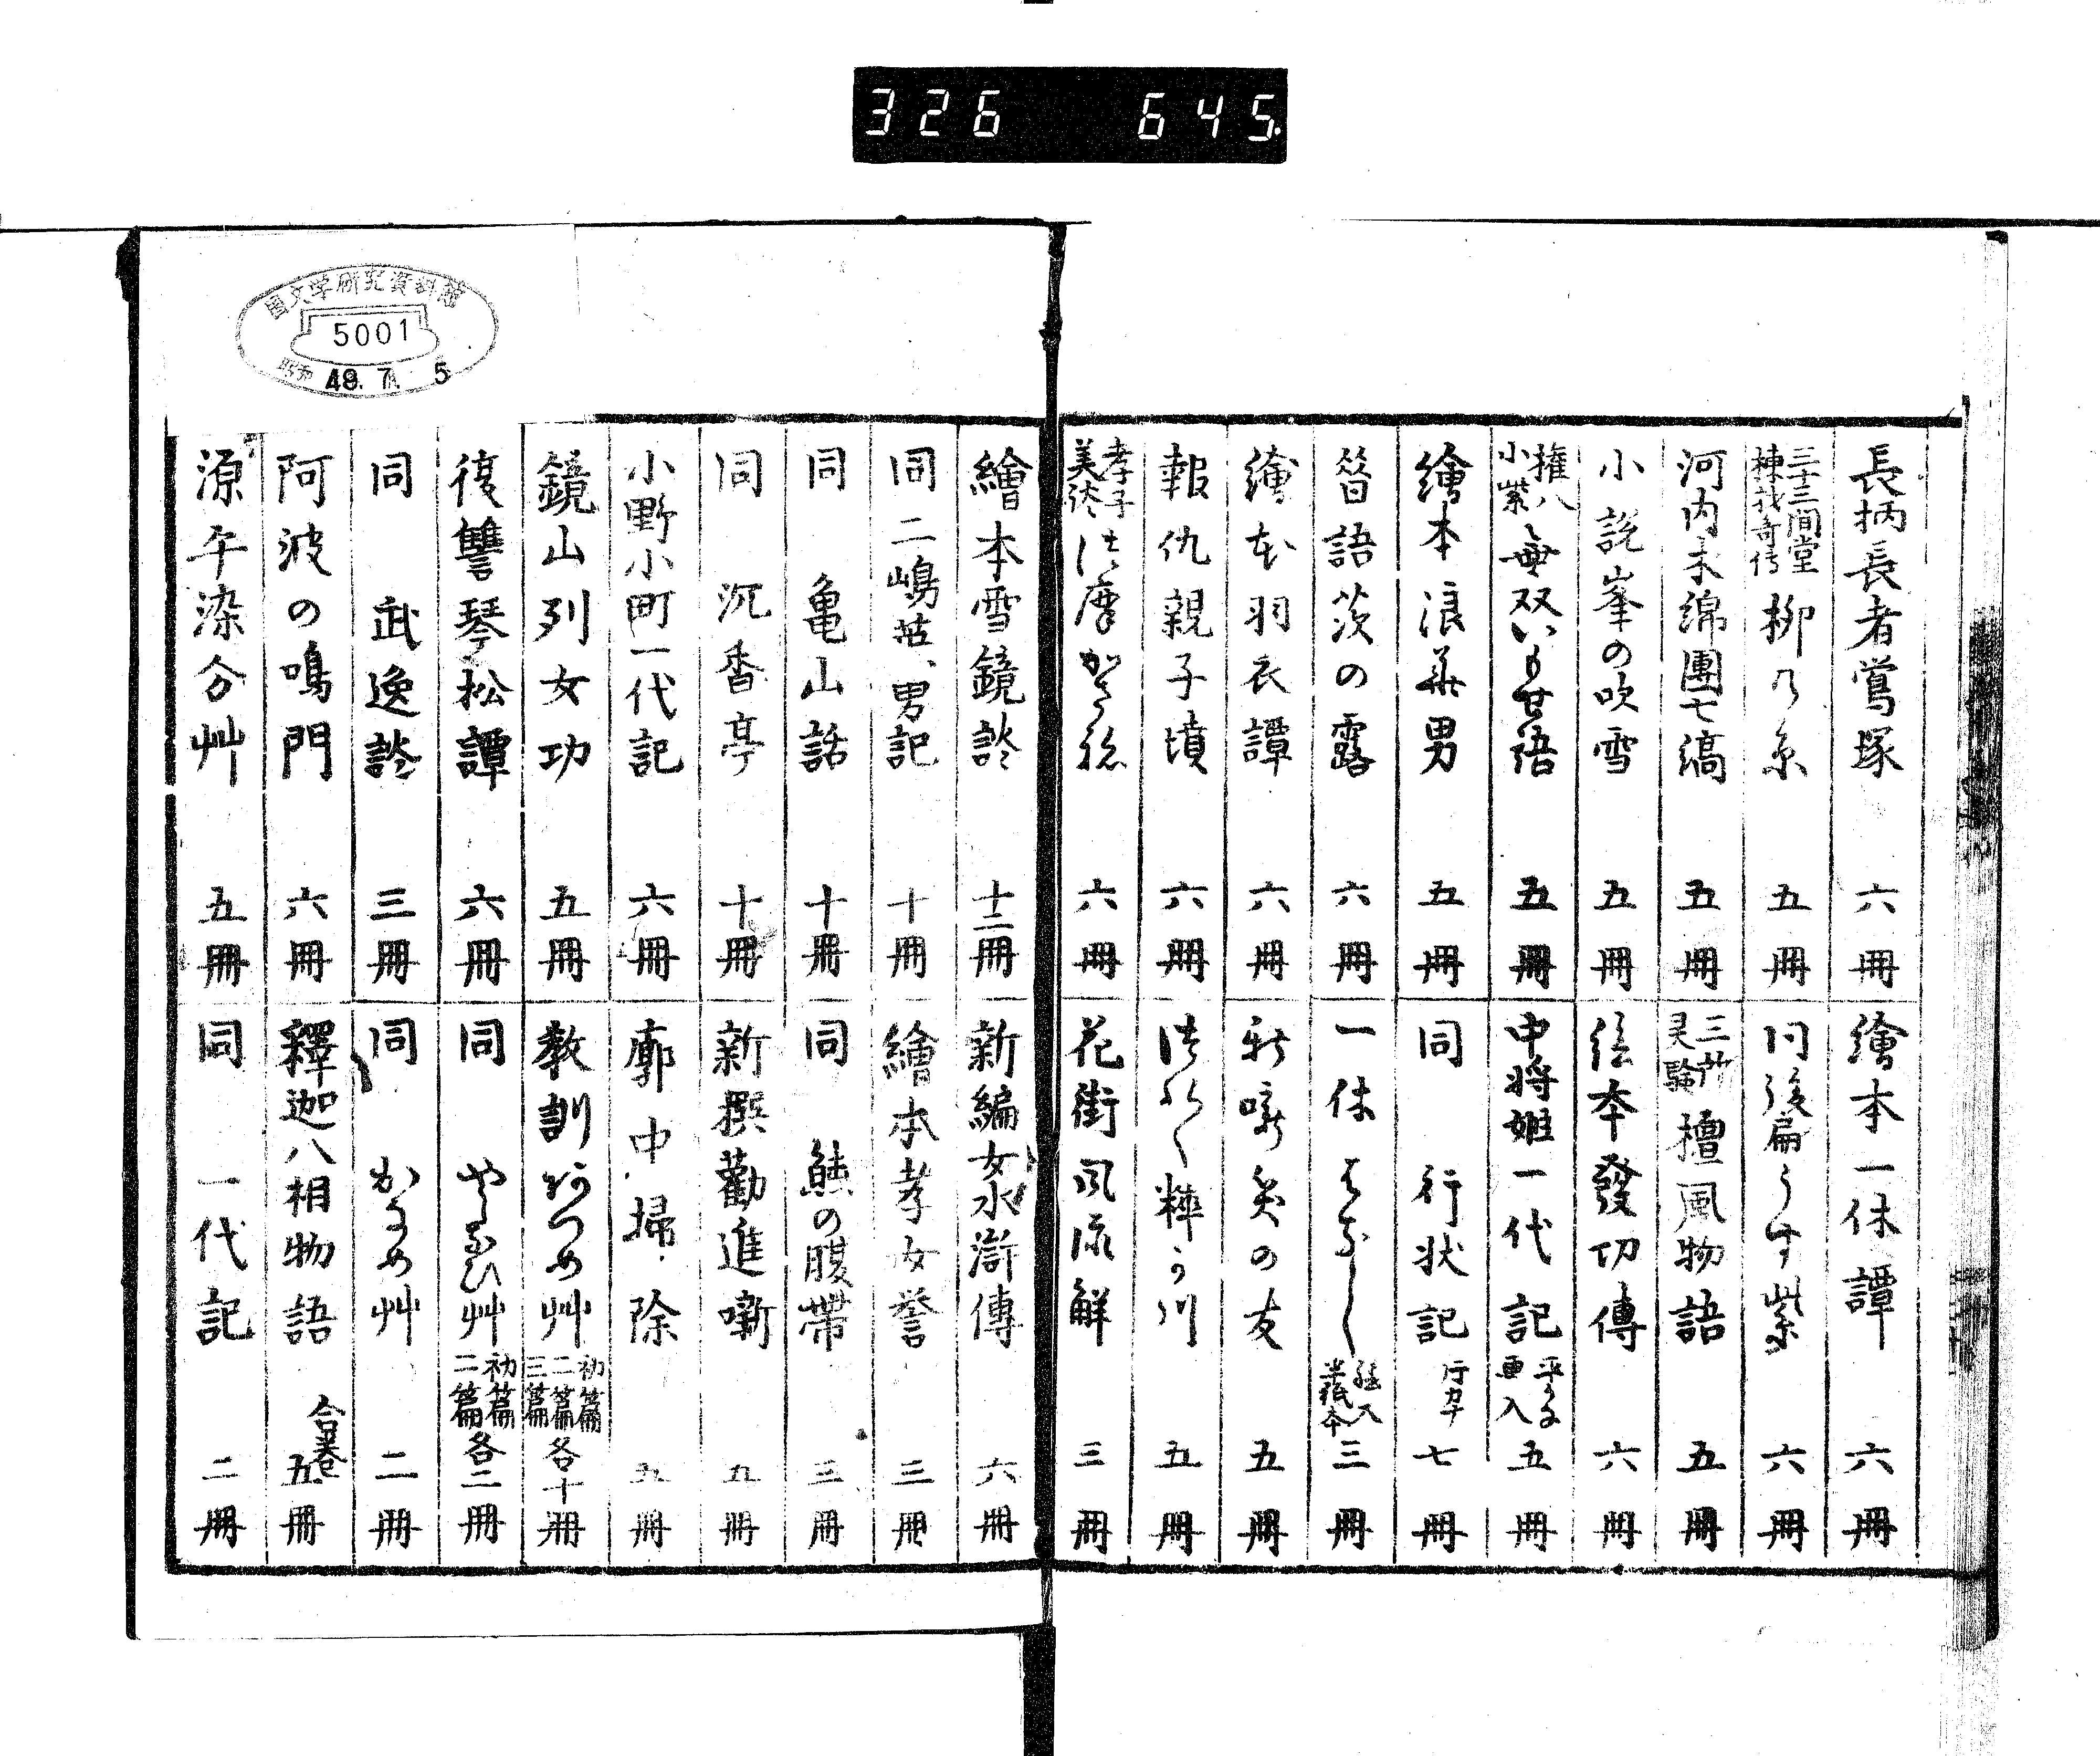 326 645
長柄長者鶯塚 六冊
三十三間堂棟材奇傳 柳乃糸 五冊
河内木綿團七縞 五冊
小説峯の吹雪 五冊
權八小紫 無双いもせ語 五冊
繪本浪華男 五冊
昔語茨の露 六冊
繪本羽衣譚 六冊
報仇親子墳 六冊
孝子美談 六冊
繪本一休譚 六冊
同後扁うす紫 六冊
三所灵驗 檀風物語 五冊
絵本發功傳 六冊
中将姫一代記 平かな画入 五冊
同 行状記 七冊
一休はなし 絵入半紙本 三冊
新噺笑の友 五冊
粋う川 五冊
花街風流解 三冊
繪本雪鏡談 十二冊
同 二嶋英勇記 十冊
同 亀山話 十冊
同 沉香亭 十冊
小野小町一代記 六冊
鏡山列女功 五冊
復讐琴松譚 六冊
同 武逸談 三冊
阿波の鳴門 六冊
源平染分艸 五冊
新編女水滸傳 六冊
繪本孝女誉 三冊
同 鮭の腹帯 三冊
新撰勸進噺 五冊
廓中掃除 五冊
教訓 あつめ艸 初篇二篇三篇 各十冊
同 やしなひ艸 初篇二篇 各二冊
同 かなめ艸 二冊
釋迦八相物語 合巻 五冊
同 一代記 二冊
国文学研究資料館
5001
昭和 49. 7. 5